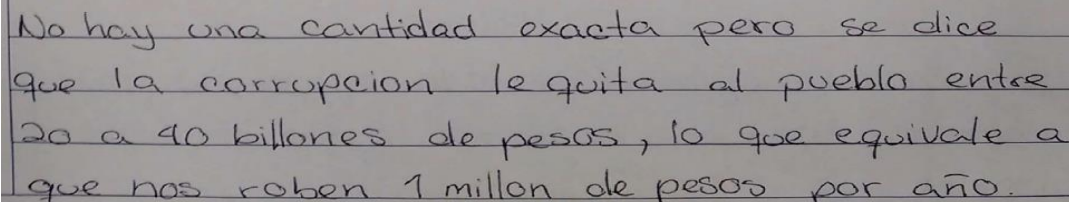 No hay una cantidad exacta pero se dice
que la corrupcion le quita al pueblo entre
20 a 40 billones de pesos, lo que equivale a
que nos roben 1 millon de pesos por año.